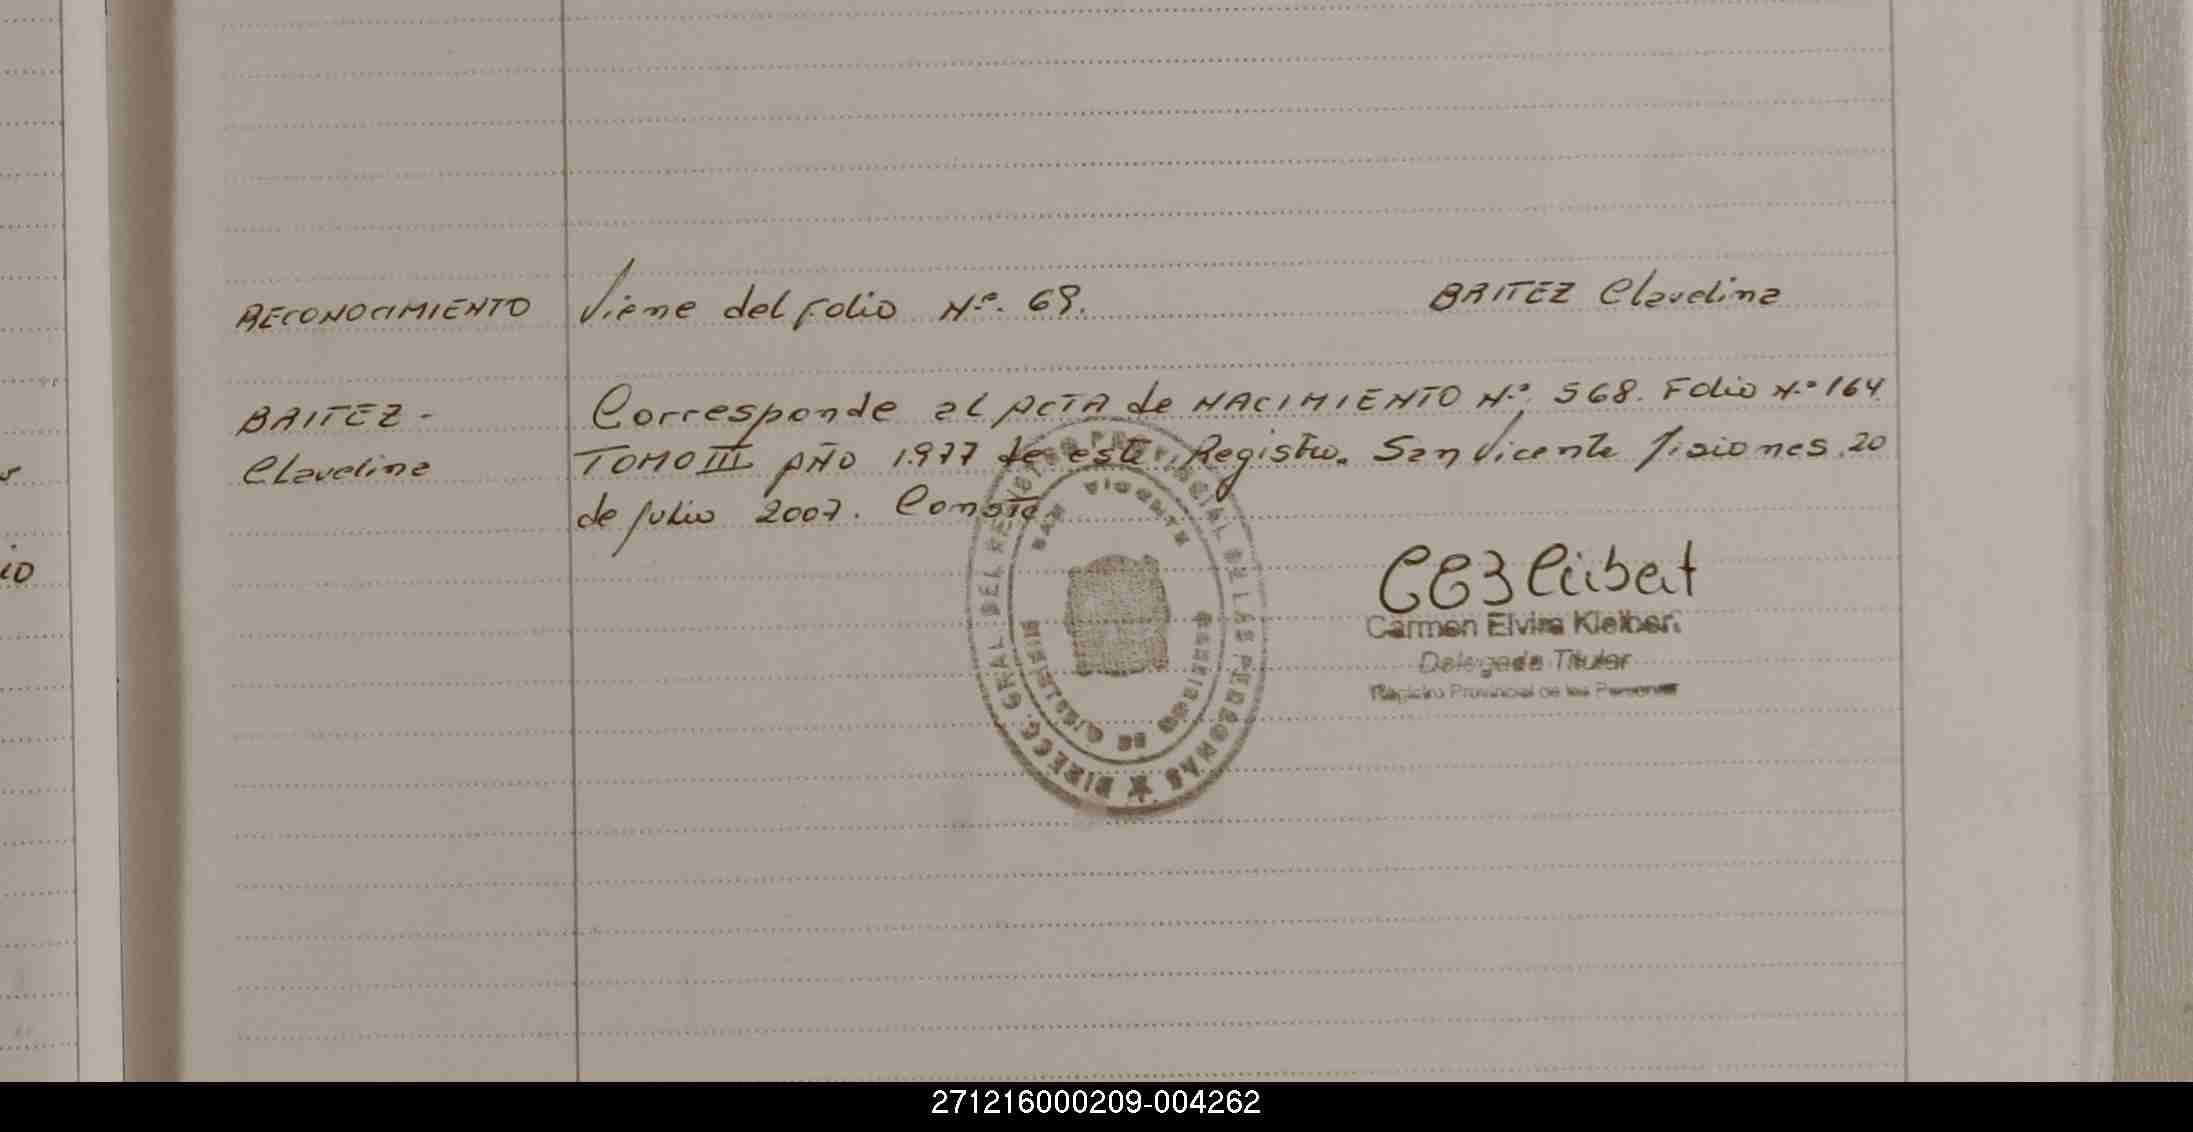 RECONOCIMIENTO
BAITEZ -
Clavelina
Viene del Folio Nº. 69.
BAITEZ Clavelina
Corresponde al ACTA de NACIMIENTO Nº. 568. Folio Nº 164
TOMO III AÑO 1.977 de este Registro. San Vicente Misiones 20
de Julio 2007. Conste.
DIRECC. GRAL DEL REGISTRO PROVINCIAL DE LAS PERSONAS
SAN VICENTE
Carmen Elvira Kleibert
Delegada Titular
Registro Provincial de las Personas
io
271216000209-004262